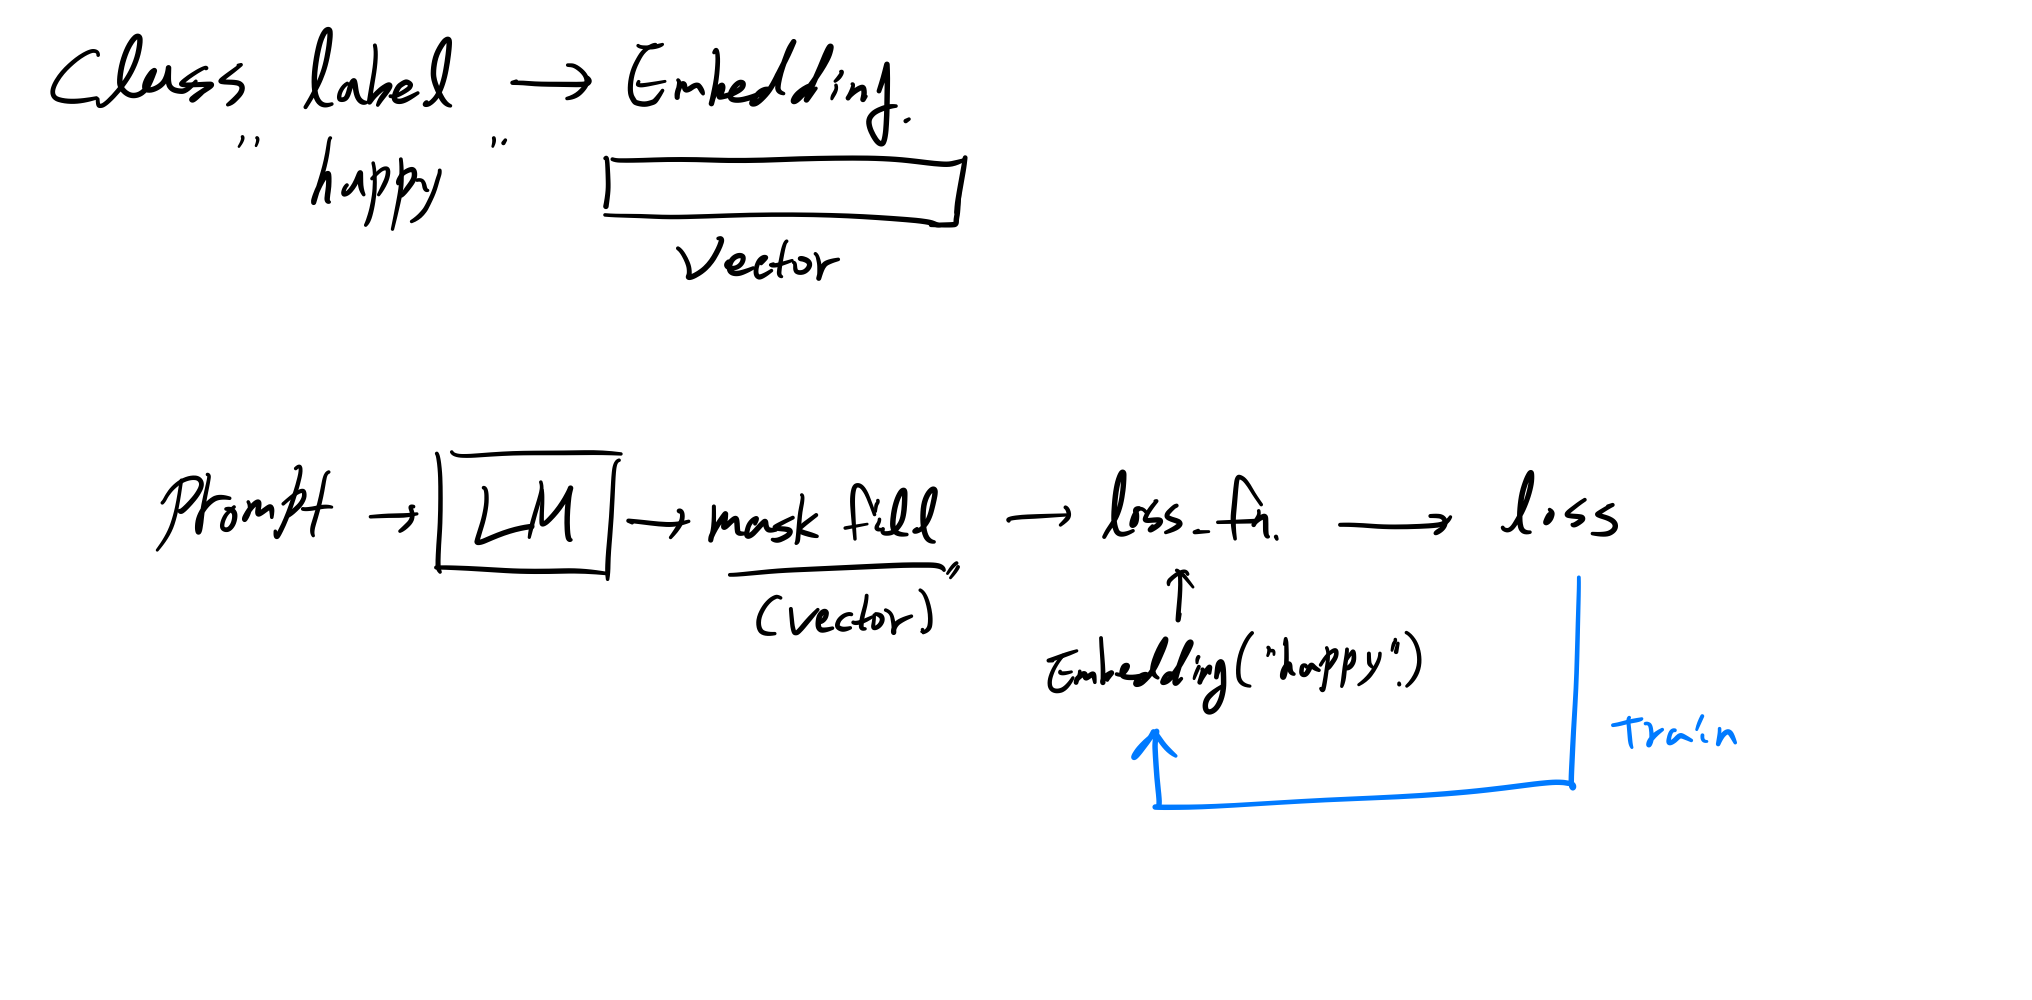 Class label → Embedding.
"happy"
Vector
Prompt → LM → mask fill → loss_fn. → loss
(vector)
Embedding("happy")
Train